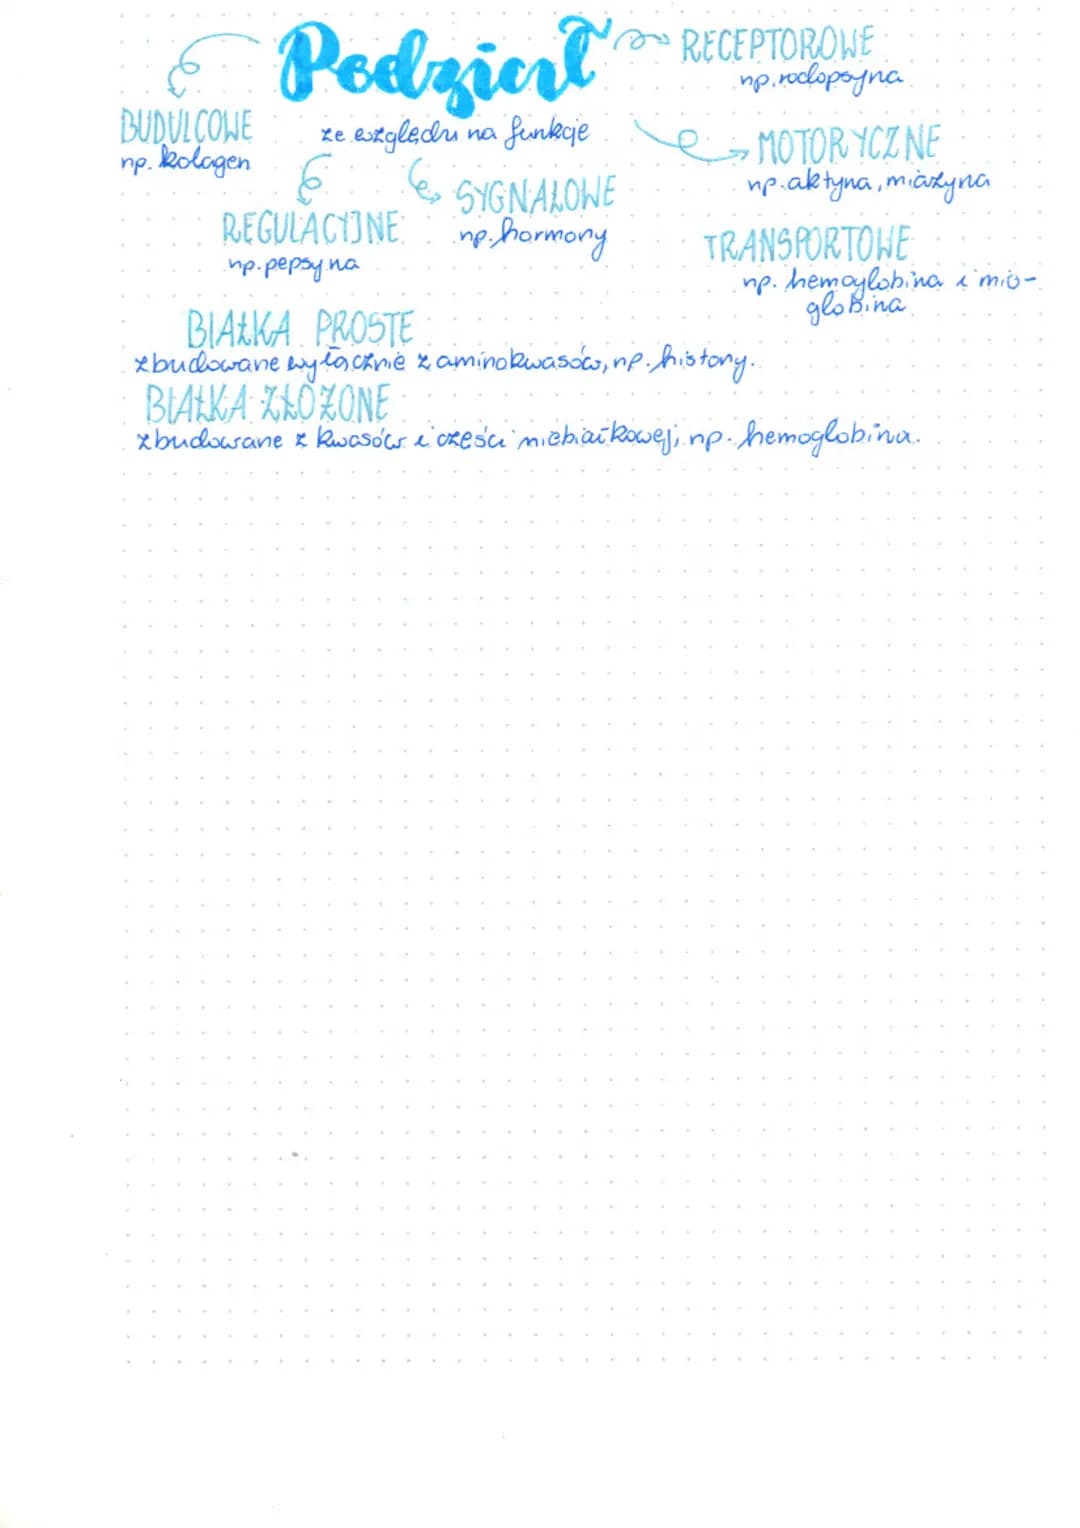 Podział
ze względu na funkcje
BUDULCOWE
np. kolagen
REGULACYJNE
np. pepsyna
SYGNAŁOWE
np. hormony
RECEPTOROWE
np. rodopsyna
MOTORYCZNE
np. aktyna, miozyna
TRANSPORTOWE
np. hemoglobina i mio-
globina
BIAŁKA PROSTE
zbudowane wyłącznie z aminokwasów, np. histony.
BIAŁKA ZŁOŻONE
zbudowane z kwasów i części niebiałkowej, np. hemoglobina.